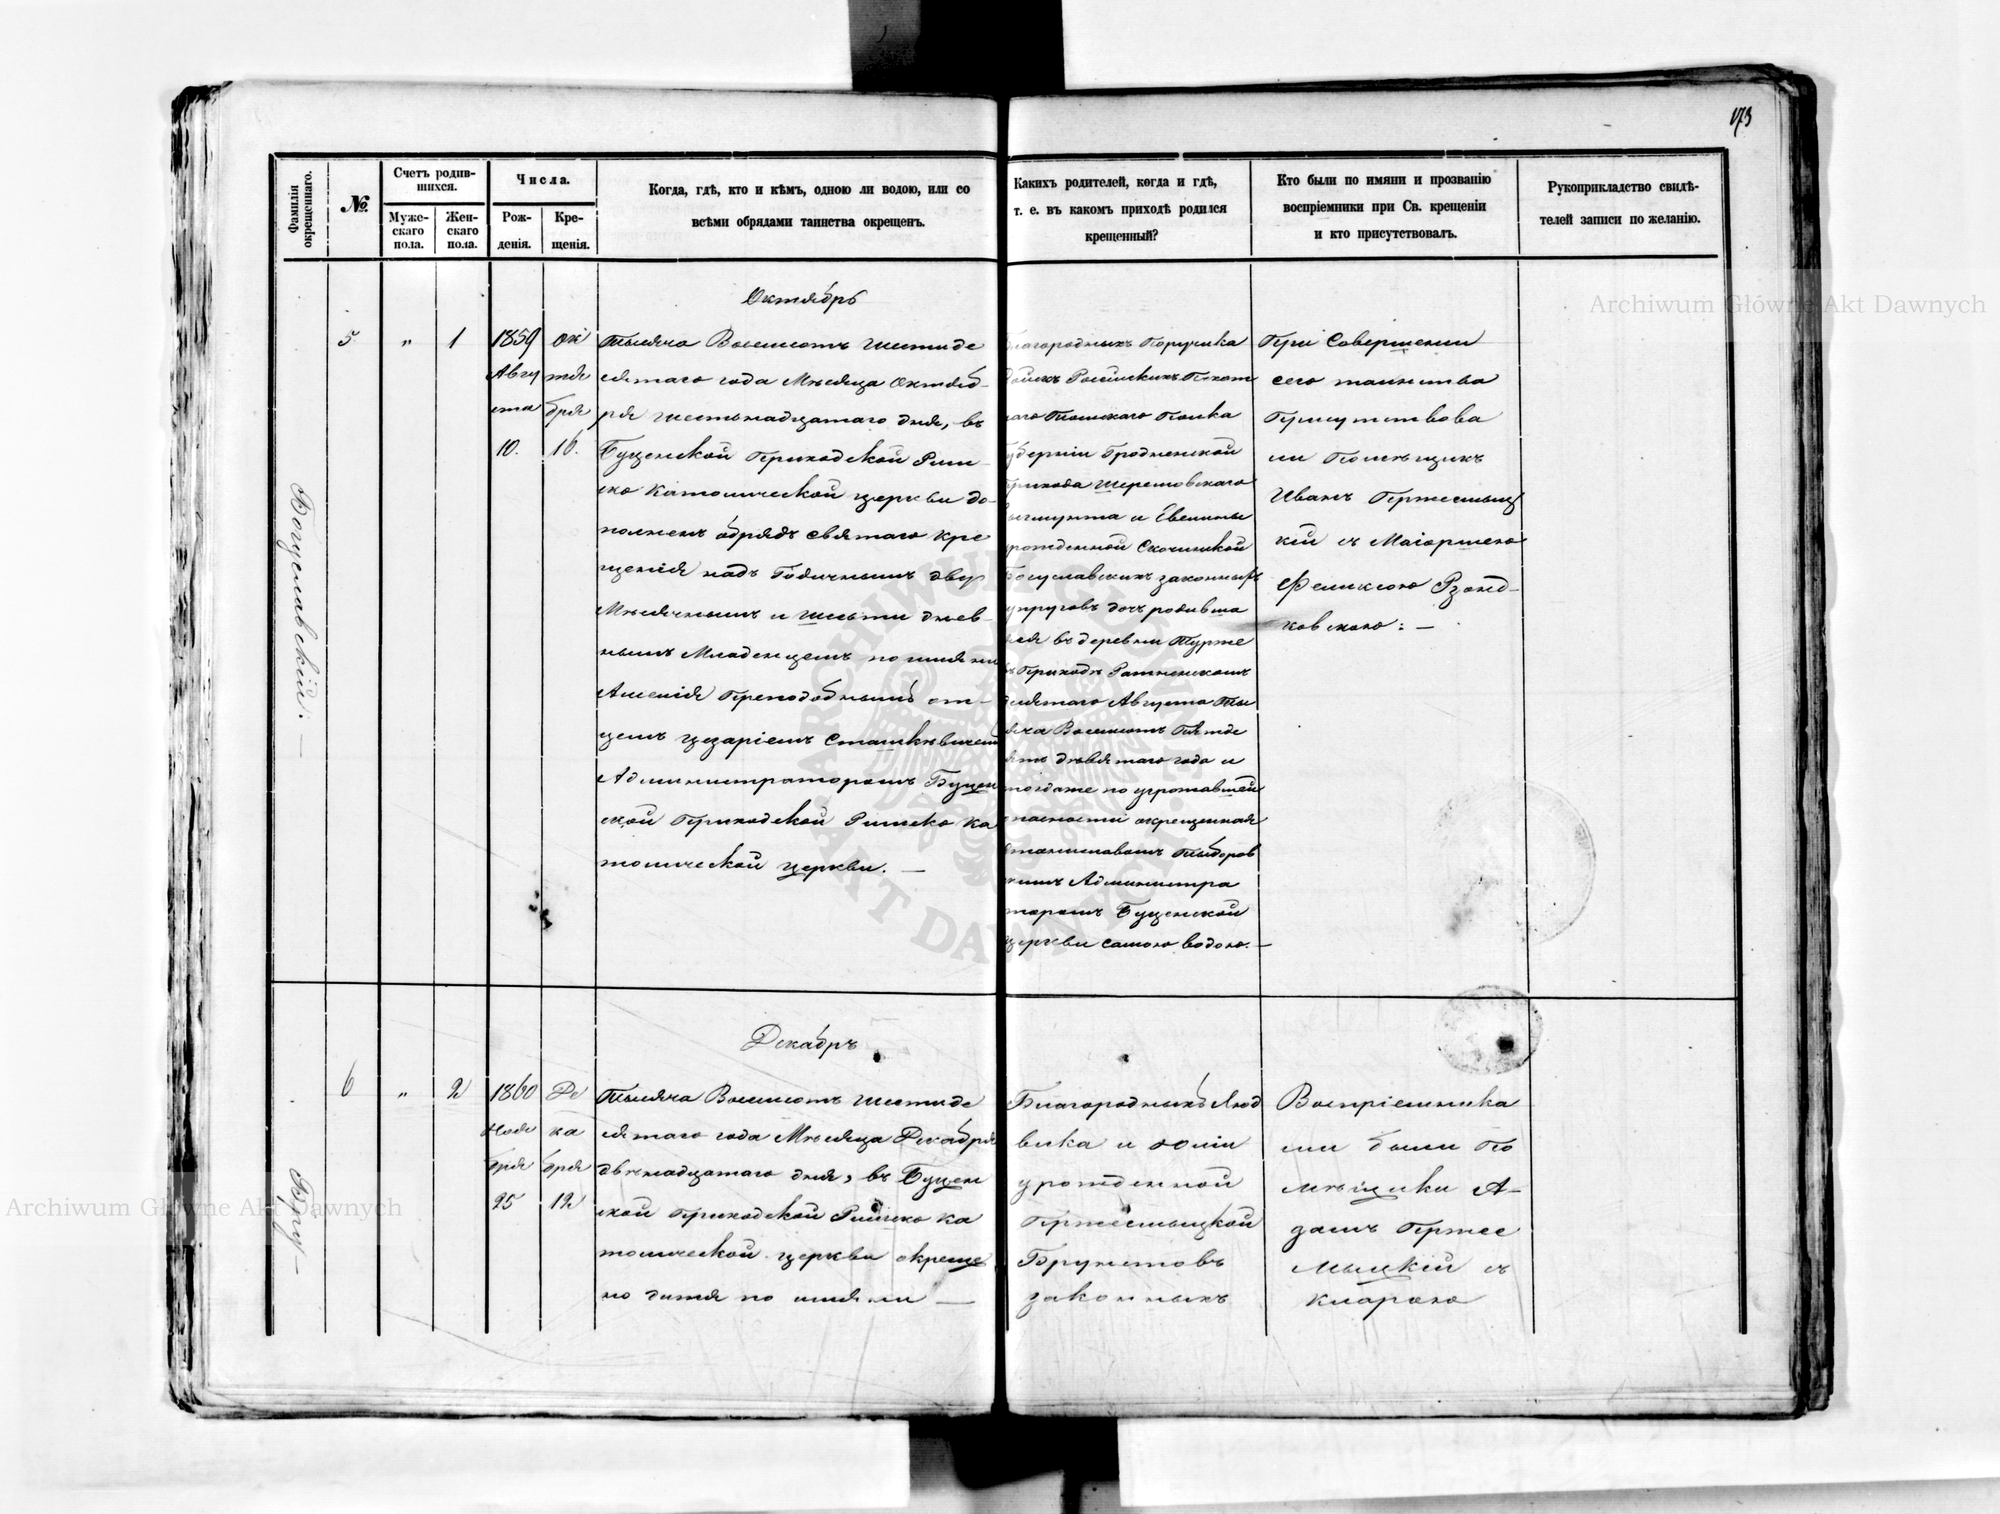 173
Фамилія окрещеннаго.
№
Счетъ родив-
шихся.
Муже-
скаго
пола.
Жен-
скаго
пола.
Числа.
Рож-
денія.
Кре-
щенія.
Когда, гдѣ, кто и кѣмъ, одною ли водою, или со
всѣми обрядами таинства окрещенъ.
Какихъ родителей, когда и гдѣ,
т. е. въ какомъ приходѣ родился
крещенный?
Кто были по имяни и прозванію
воспріемники при Св. крещеніи
и кто присутствовалъ.
Рукоприкладство свидѣ-
телей записи по желанію.
Богуславскій: —
5
"
1
1859
Авгу
ста
10.
Ок
тя
бря
16.
Октябрь
Тысяча Восемсотъ шестиде
сятаго года Мѣсяца Октяб-
ря шестьнадцатаго дня, въ
Буценской Приходской Рим-
ско Католической церкви до-
полненъ обрядъ святаго кре
щенія надъ Годичнымъ двух
Мѣсячнымъ и шести днев-
нымъ Младенцемъ по имяни
Амелія Преподобнымъ от-
цемъ Цезаріемъ Сташкѣвичемъ
Администраторомъ Буцен
ской Приходской Римско Ка
толической церкви. —
благородныхъ Поручика
Войскъ Россійскихъ Пехот
наго Томскаго Полка
Губерніи Гродненской
Прихода Шерешовскаго
и Евелины
урожденной
Богуславскихъ законныхъ
супруговъ дочь родивша
яся въ деревни Турже
въ Приходѣ Ратненскомъ
десятаго Августа Ты
сяча Восемсотъ Пятьде
сятъ девятаго года и
тогдаже по угрожавшей
опасности окрещенная
Станиславомъ
Администра
торомъ Буценской
церкви самою водою. —
При Совершении
сего таинства
Присутствова
ли Помѣщикъ
Иванъ Пржесмыц
кій съ Маіоршею
Феликсою Рзонд-
ковскою: —
Бру—
6
"
2
1860
Ноя
бря
25
Де
ка
бря
12
Декабрь
Тысяча Восемсотъ шестиде
сятаго года Мѣсяца Декабря
двѣнадцатаго дня, въ Буцен
ской Приходской Римско Ка
толической церкви окреще
но дитя по имяни —
Благородныхъ Люд
вика и Юліи
урожденной
Пржесмыцкой
Брунетовъ
законныхъ
Воспріемника
ми были По
мѣщики А-
дамъ Пржес
мыцкій съ
Кларою
Archiwum Główne Akt Dawnych
Archiwum Główne Akt Dawnych
ARCHIWUM GŁÓWNE AKT DAWNYCH